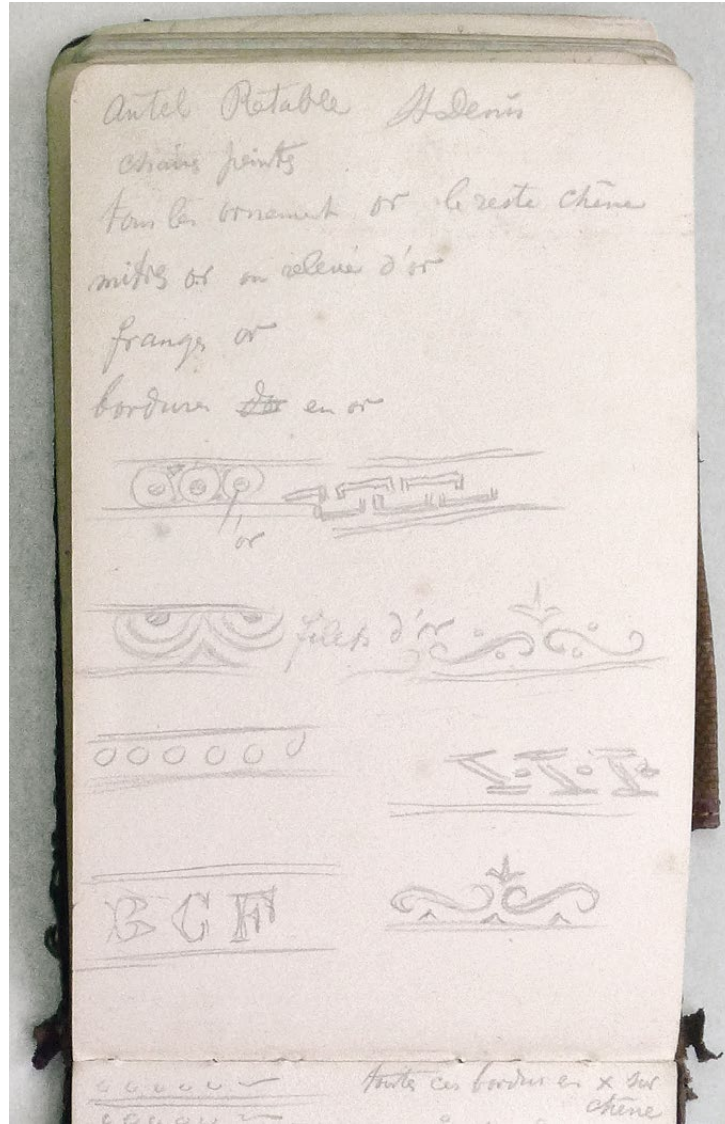 Autel Retable St Denis
chairs peints
tous les ornement or le reste chêne
mitres or ou relevé d'or
franges or
bordures d'or en or
or
filets d'or
B C F
toutes ces bordures en x sur
chêne